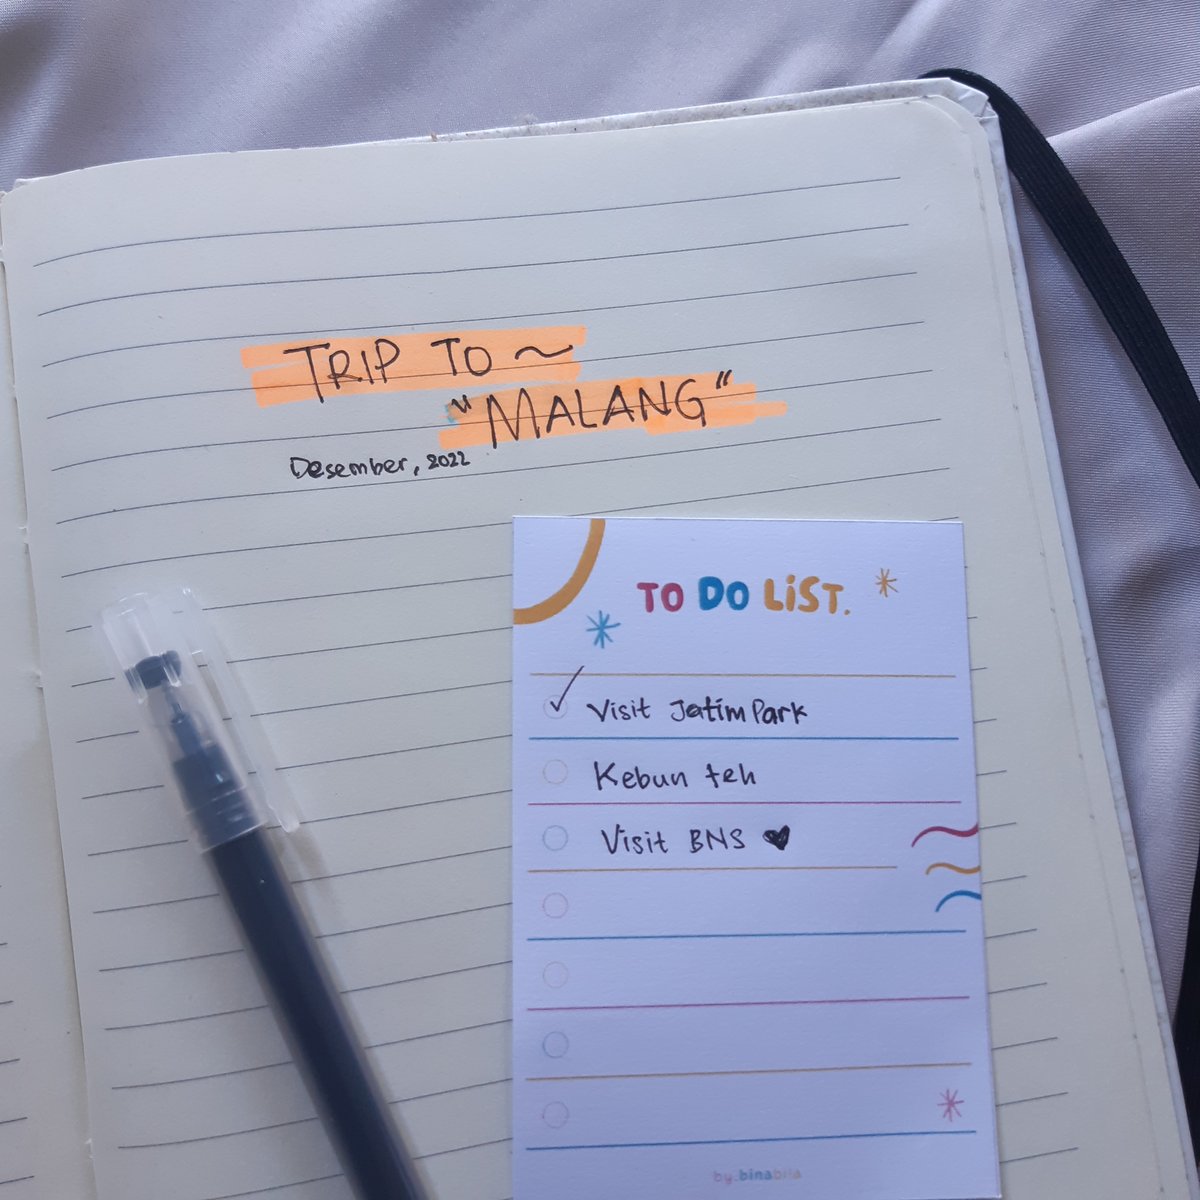 TRIP TO ~
"MALANG"
Desember, 2022
TO DO LiST.
✓ Visit Jatim Park
Kebun teh
Visit BNS ♥
by.binabila